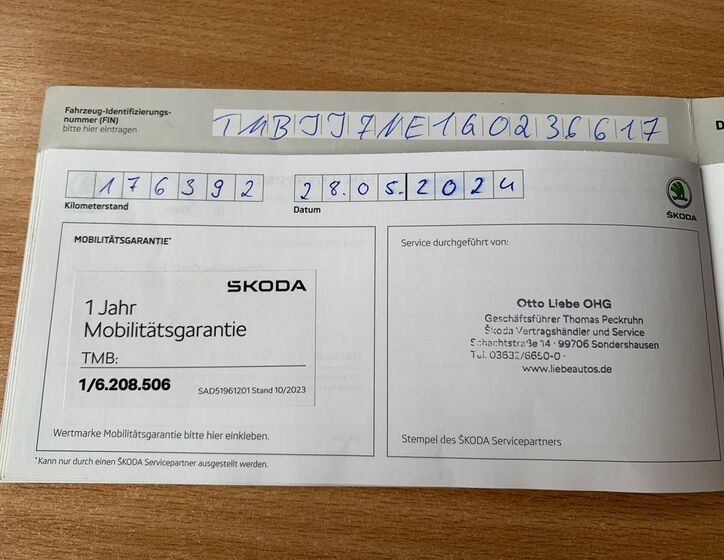 Fahrzeug-Identifizierungs-
nummer (FIN)
bitte hier eintragen
TMBJJ7NE1G0236617
176392
28.05.2024
Kilometerstand
Datum
ŠKODA
MOBILITÄTSGARANTIE*
ŠKODA
1 Jahr
Mobilitätsgarantie
TMB:
1/6.208.506
SAD51961201 Stand 10/2023
Wertmarke Mobilitätsgarantie bitte hier einkleben.
Service durchgeführt von:
Otto Liebe OHG
Geschäftsführer Thomas Peckruhn
Škoda Vertragshändler und Service
Schachtstraße 14 · 99706 Sondershausen
Tel. 03632/6650-0 ·
www.liebeautos.de
Stempel des ŠKODA Servicepartners
*Kann nur durch einen ŠKODA Servicepartner ausgestellt werden.